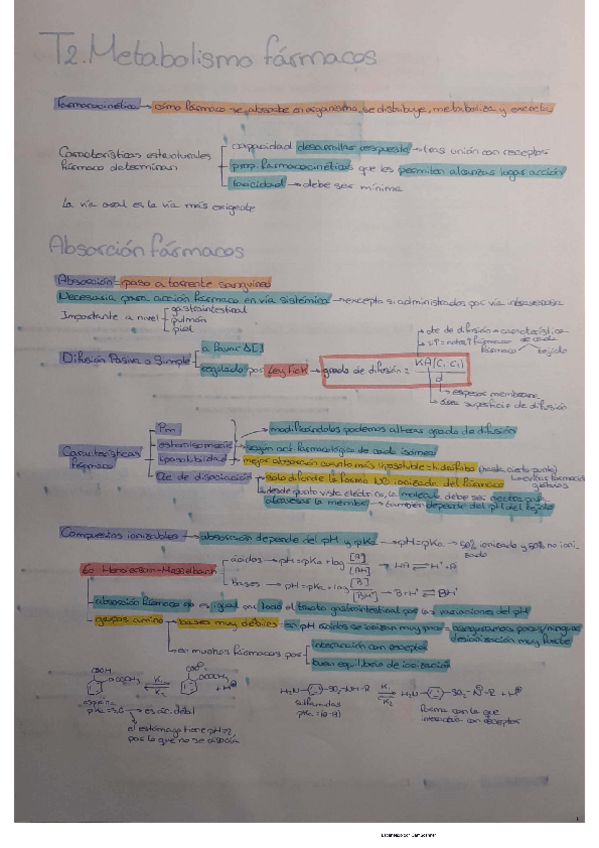 T2. Metabolismo fármacos
Farmacocinética → cómo fármaco se absorbe en organismo, se distribuye, metaboliza y excreta
Características estructurales fármaco determinan
capacidad desarrollar respuesta → tras unión con receptor
prop. farmacocinéticas que les permiten alcanzar lugar acción
toxicidad → debe ser mínima
La vía oral es la vía más exigente
Absorción fármacos
Absorción = paso a torrente sanguíneo
Necesaria para acción fármaco en vía sistémica → excepto si administrados por vía intravenosa
Importante a nivel
gastrointestinal
pulmón
piel
Difusión Pasiva o Simple
a favor Δ[ ]
regulado por Ley Fick → grado de difusión =
d
cte de difusión =
espesor membrana
área superficie de difusión
Características fármaco
Pm
estereoisomería
Liposolubilidad
Cte de disociación
modificándolos podemos alterar grado de difusión
según act. farmacológica de cada isómero
mejor absorción cuanto más liposoluble = hidrófoba (hasta cierto punto)
solo difunde la forma NO ionizada del fármaco
desde punto vista eléctrico, la molécula debe ser neutra para
atravesar la membr. → también depende del pH del tejido
Compuestos ionizables → absorción depende del pH y pKa → pH = pKa → 50% ionizado y 50% no ionizado
Ec Henderson-Hasselbach
ácidos → pH = pKa + log [A⁻]/[AH] → HA ⇌ H⁺ + A⁻
Bases → pH = pKa + log [B]/[BH⁺] → B + H⁺ ⇌ BH⁺
absorción fármaco no es igual en todo el tracto gastrointestinal por las variaciones del pH
grupos amino → bases muy débiles =
en muchos fármacos por
interacción con receptor
buen equilibrio de ionización
COOH
OCOCH₃
K₁
K₂
+ H⁺
aspirina
pKa = 3,6 → es ác. débil
el estómago tiene pH = 2,
por lo que no se disocia
H₂N
SO₂-NH-R
K₁
K₂
H₂N
SO₂-N⁻-R + H⁺
sulfamidas
forma con la que
interacciona con receptor